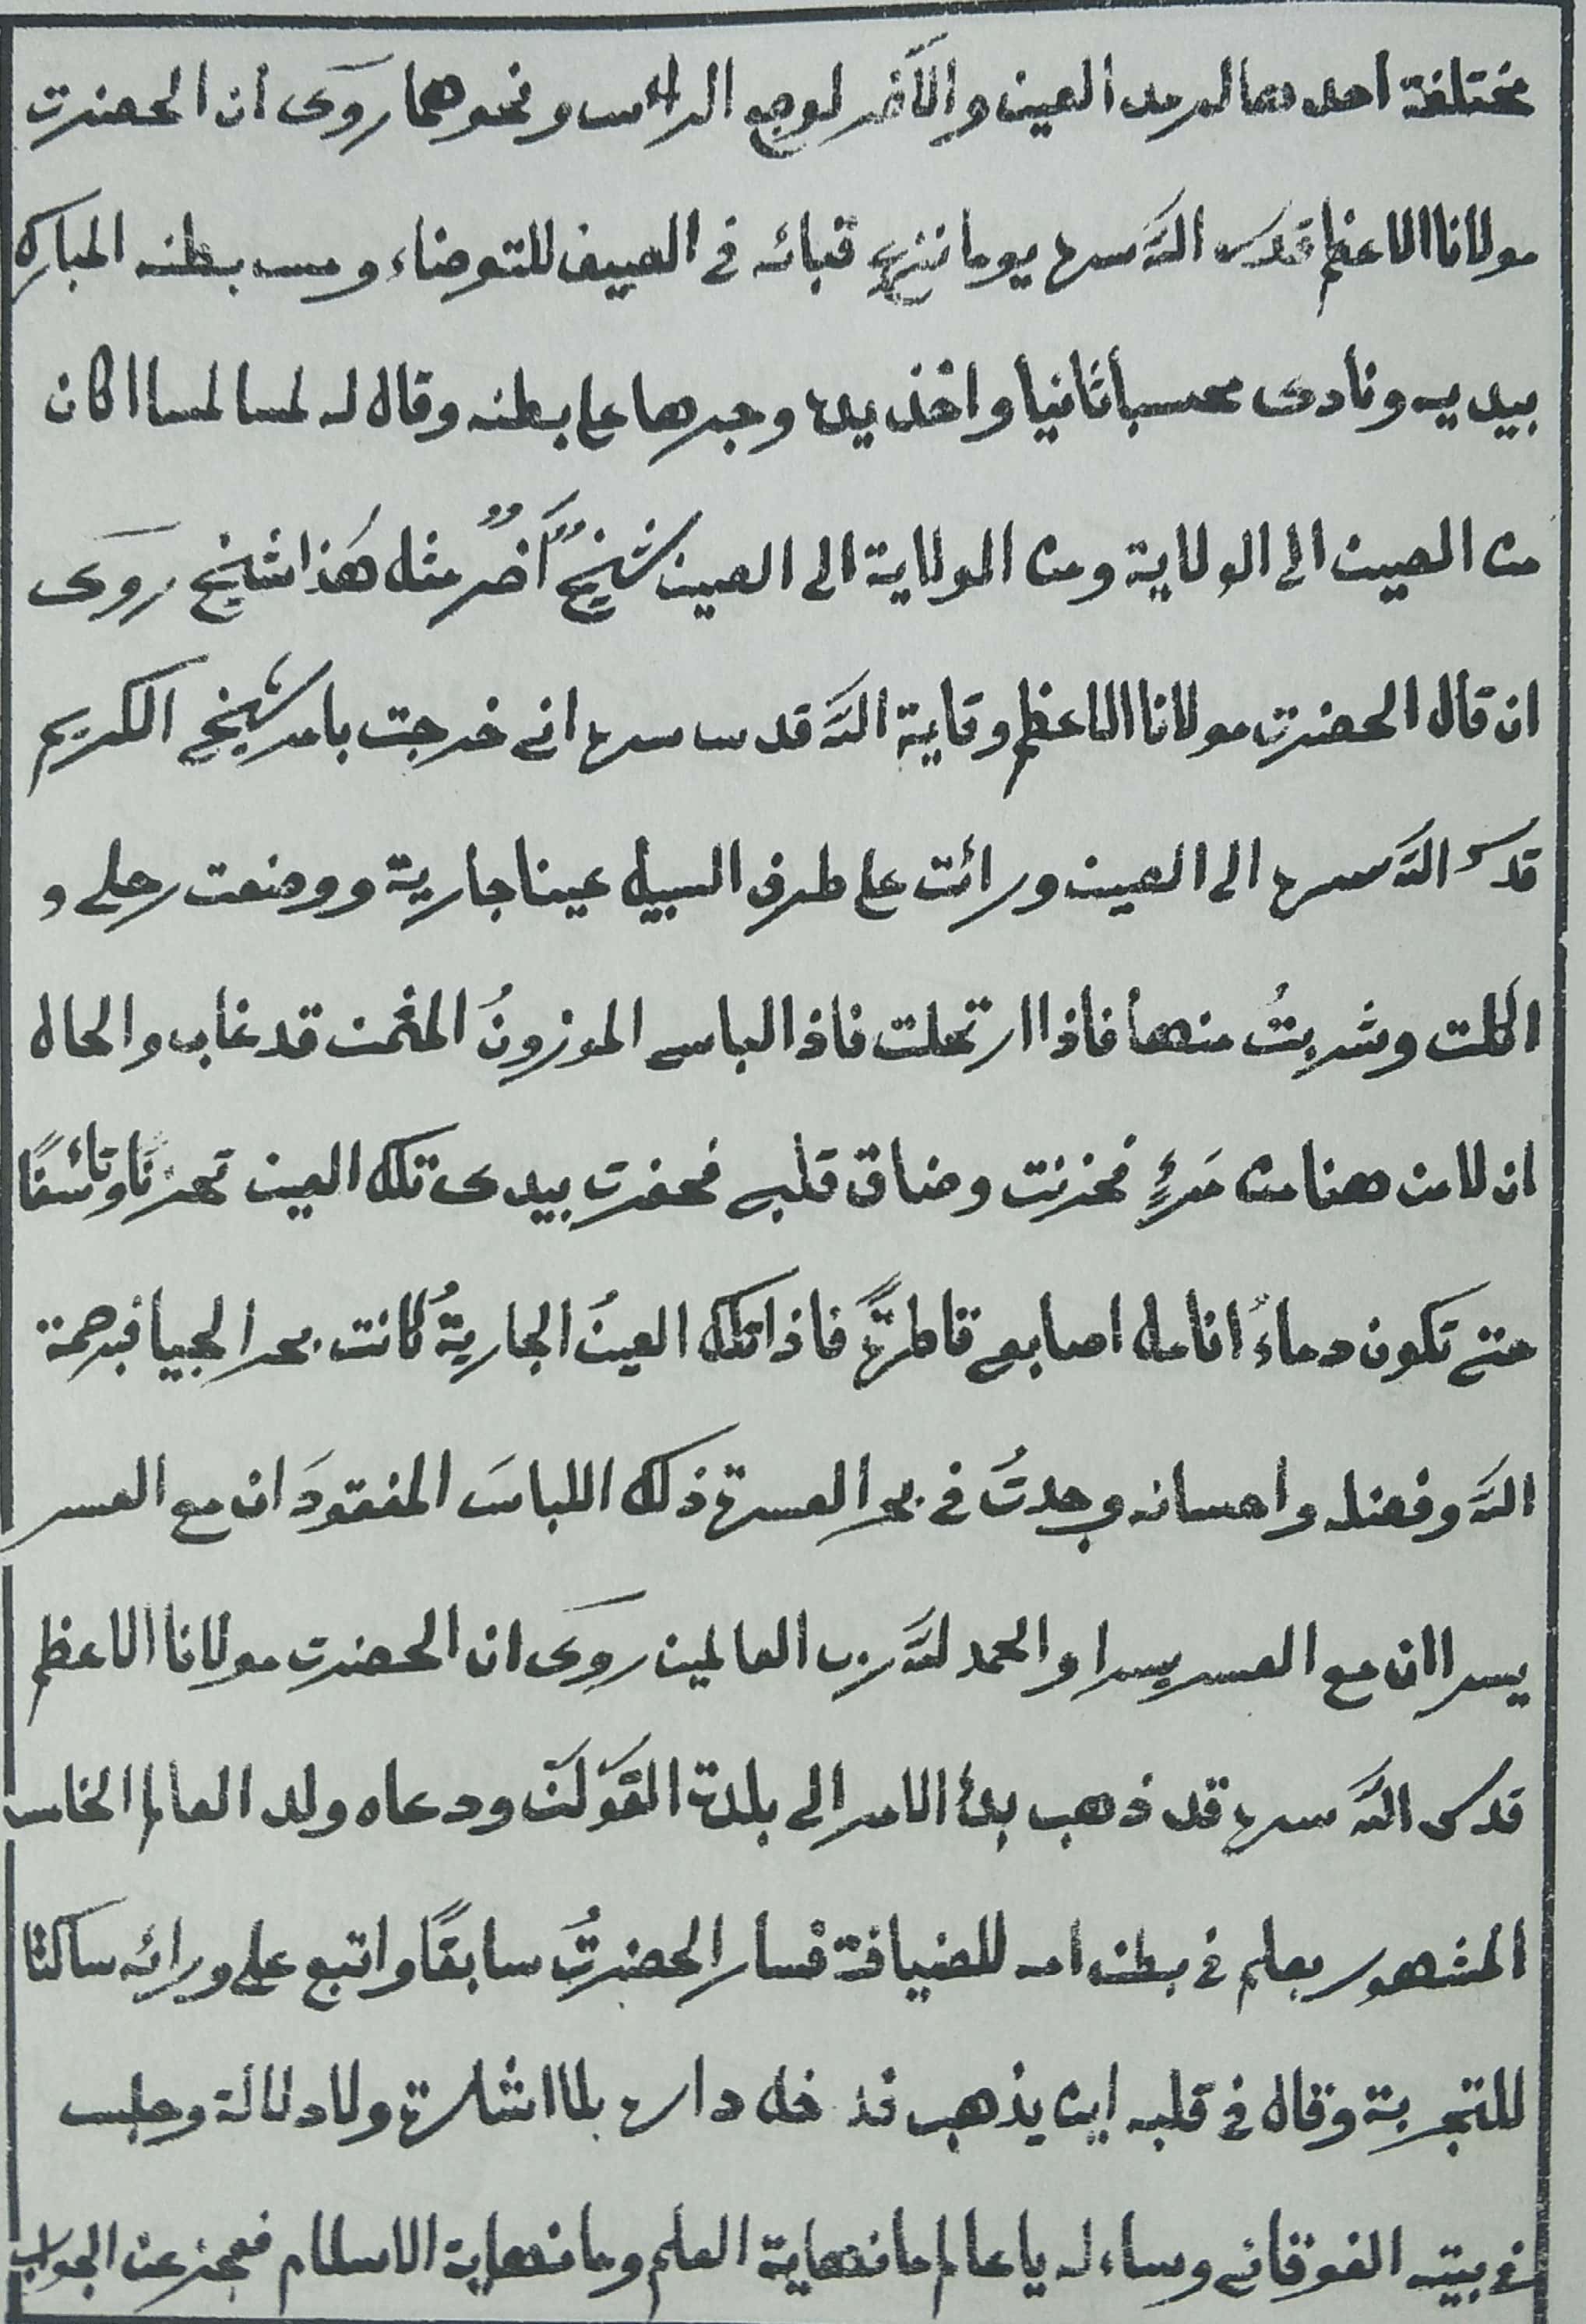 مختلفة احدهما لرمد العين والآخر لوجع الرائس ونحوهما روَى ان الحضرت
مولانا الاعظم قدس اللّه سره يوما نزع قبائه فى الصيف للتوضاء ومسـ بطنه المباركـ
بيديه ونادى محسبا ثانيا واخذ يده وجرها على بطنه وقال له لمسا لمسا اكان
من الصين الى الولاية ومن الولاية الى الصين شيخٌ آخرُ مثل هَذا شيخ روَى
ان قال الحضرت مولانا الاعظم وقاية اللّه قدس سره انى خرجت بامر شيخى الكريم
قدس اللّه سره الى الصين ورائت على طرف السبيل عينا جارية ووضعت رحلى و
اكلت وشربتُ منها فاذا ارتحلت فاذا لباسى الموزونُ المثمن قد غاب والحال
ان لا من هنا من مَرءٍ فحزنت وضاق قلبى فحفرت بيدى تلك العين تحزنًا وتائسفًا
حتى تكون دماءُ انامل اصابعى قاطرةً فاذا تلك العينُ الجاريةُ كانت بحرا لجيا فبرحمة
اللّه وفضله واحسانه وجدتُ فى بحر العسرة ذلك اللباسَ المفقودَ ان مع العسر
يسرا ان مع العسر يسرا والحمد للّه رب العالمين روَى ان الحضرت مولانا الاعظم
قدس اللّه سره قد ذهب بدأ الامر الى بلدة القَوَلَن ودعاه ولد العالم الخامس
المشهور بعلم فى بطن امه للضيافة فسار الحضرتُ سابقًا واتبع على ورائه ساكتا
للتجربة وقال فى قلبه اين يذهب فدخل داره بلا اشارة ولا دلالة وجلس
فى بيته الفوقانى وساءله يا عالم ما نهاية العلم وما نهاية الاسلام فعجز عن الجواب